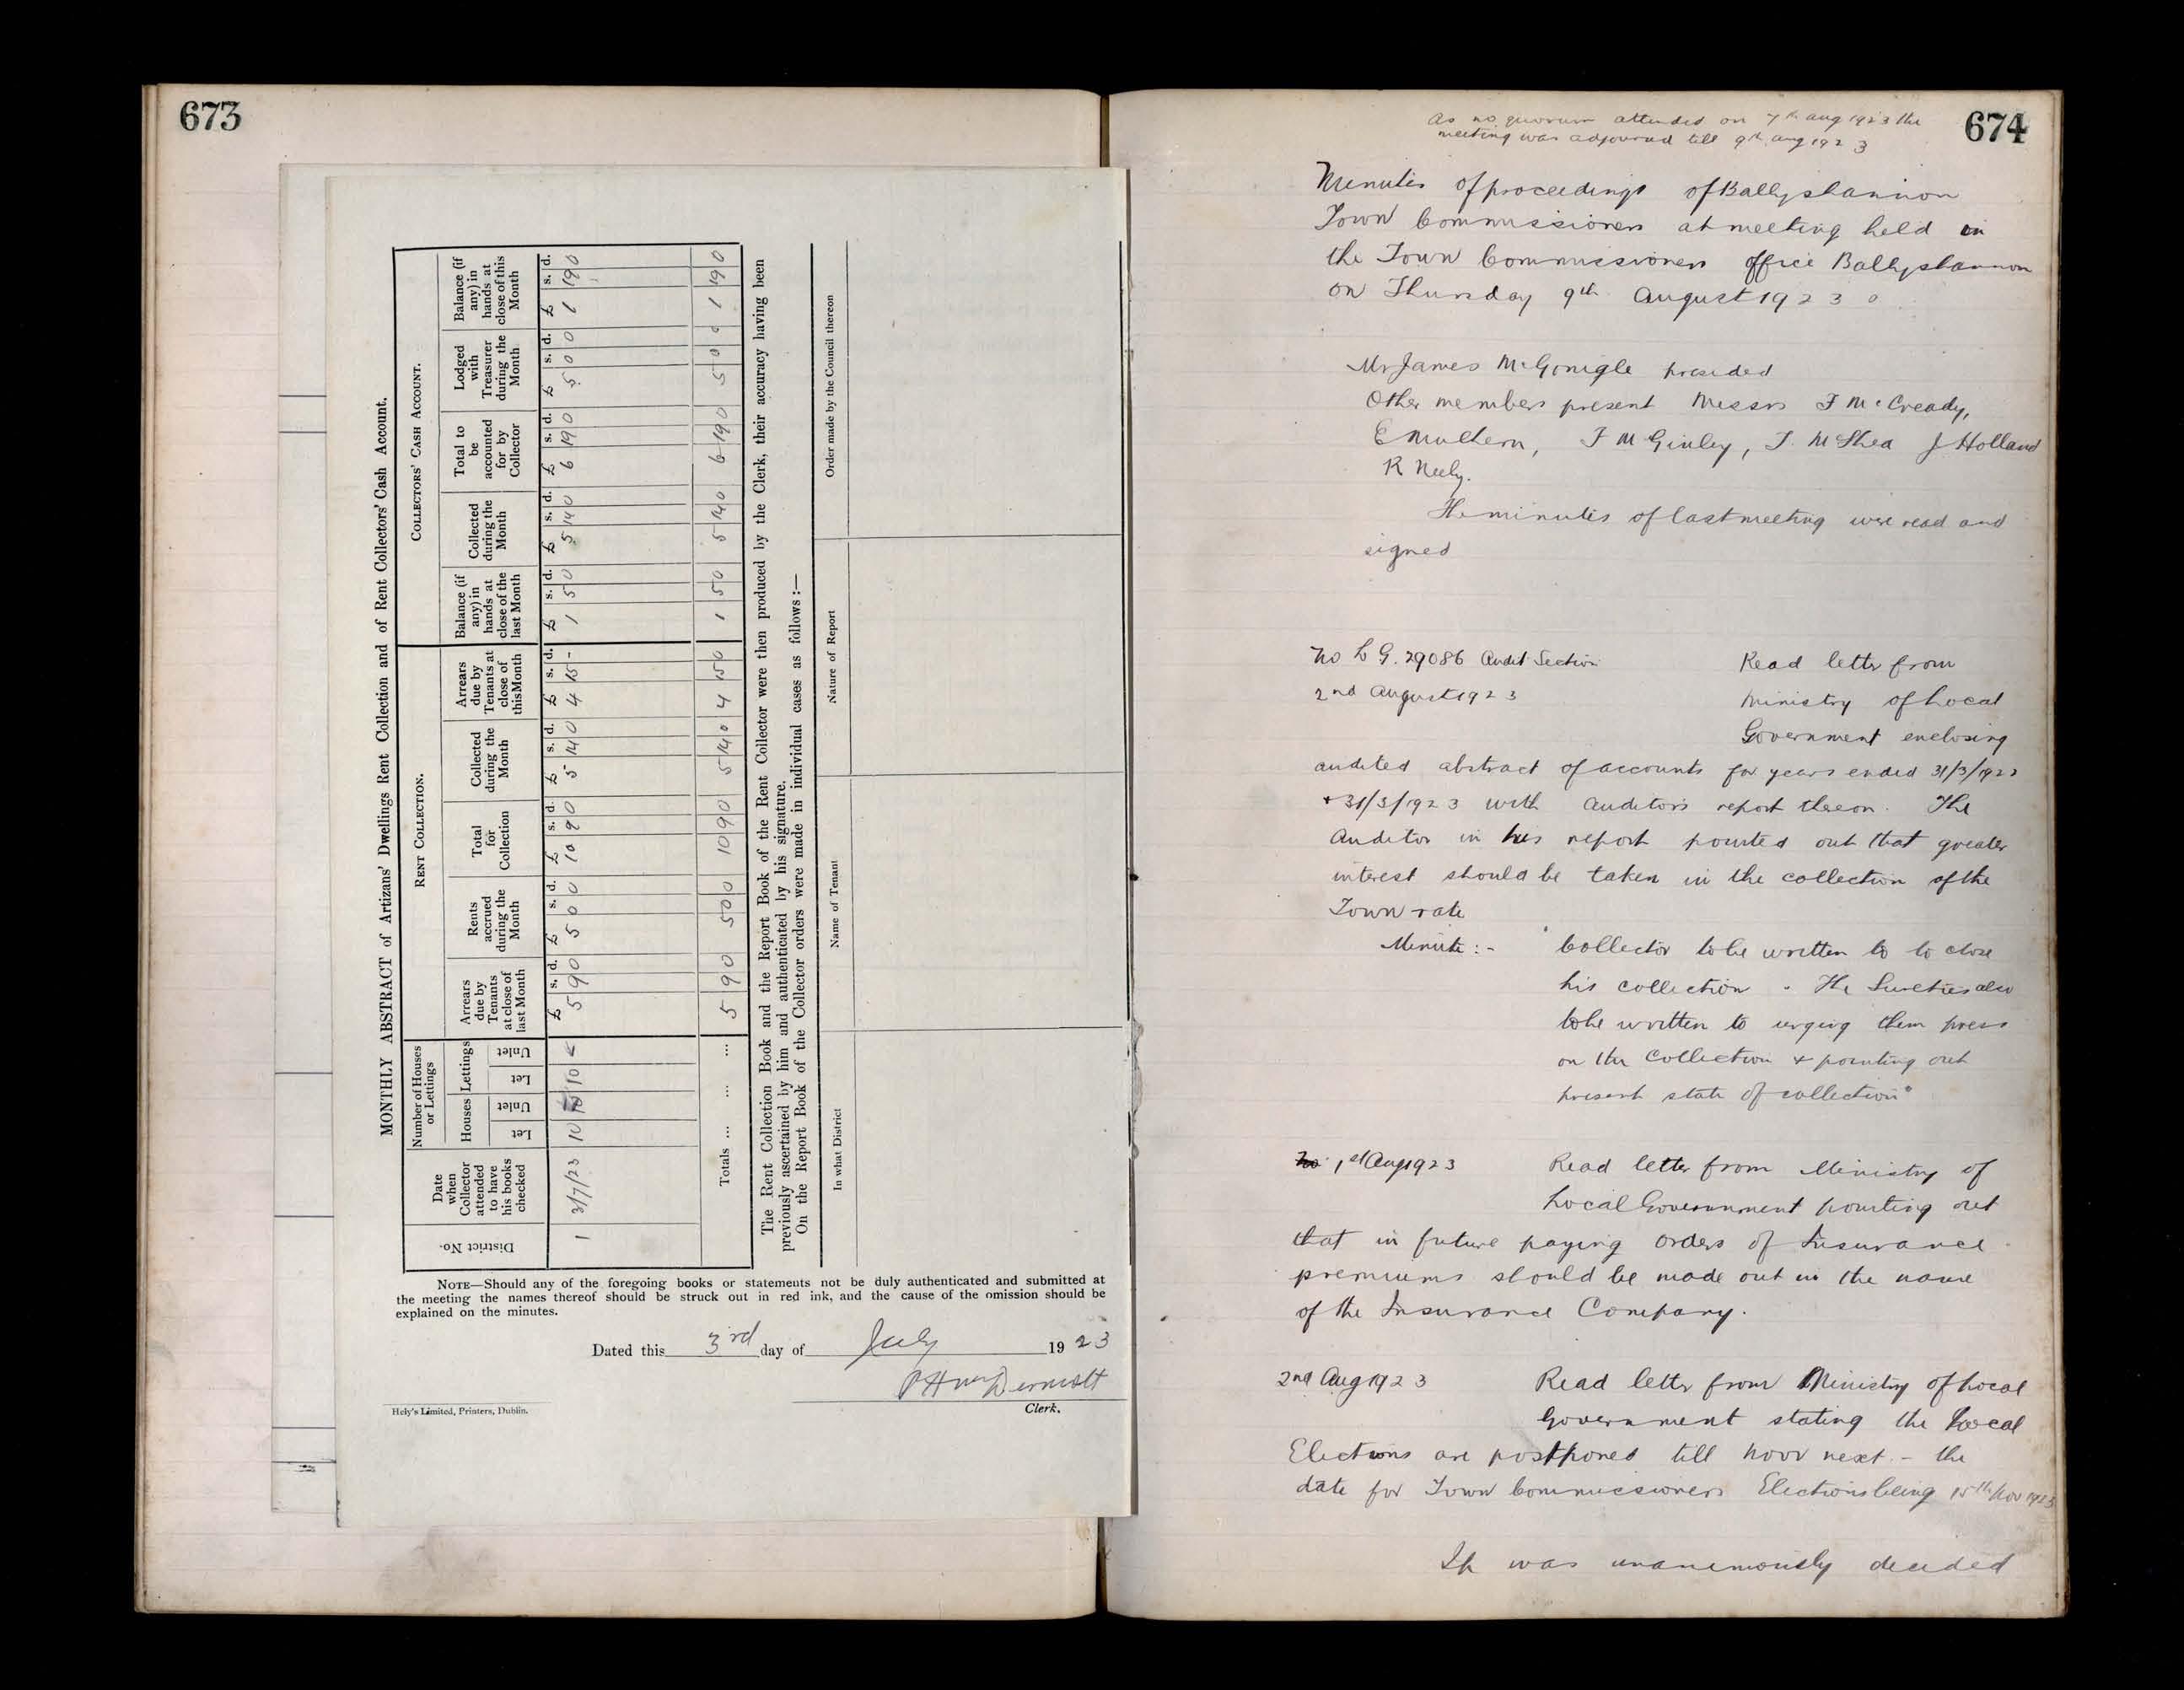 673
MONTHLY ABSTRACT of Artizans' Dwellings Rent Collection and of Rent Collectors' Cash Account.
District No.
Date when Collector attended to have his books checked
Number of Houses or Lettings
Houses
Let
Unlet
Lettings
Let
Unlet
RENT COLLECTION.
Arrears due by Tenants at close of last Month
Rents accrued during the Month
Total for Collection
Collected during the Month
Arrears due by Tenants at close of this Month
COLLECTORS' CASH ACCOUNT.
Balance (if any) in hands at close of the last Month
Collected during the Month
Total to be accounted for by Collector
Lodged with Treasurer during the Month
Balance (if any) in hands at close of this Month
£ s. d. £ s. d. £ s. d. £ s. d. £ s. d. £ s. d. £ s. d. £ s. d. £ s. d. £ s. d.
1 3/7/23 10 10 5 9 0 5 0 0 10 9 0 5 14 0 4 15 - 1 5 0 5 14 0 6 19 0 5 0 0 1 19 0
Totals ... ... ... 5 9 0 5 0 0 10 9 0 5 14 0 4 15 0 1 5 0 5 14 0 6 19 0 5 0 0 1 19 0
The Rent Collection Book and the Report Book of the Rent Collector were then produced by the Clerk, their accuracy having been
previously ascertained by him and authenticated by his signature.
On the Report Book of the Collector orders were made in individual cases as follows :—
In what District
Name of Tenant
Nature of Report
Order made by the Council thereon
NOTE—Should any of the foregoing books or statements not be duly authenticated and submitted at
the meeting the names thereof should be struck out in red ink, and the cause of the omission should be
explained on the minutes.
Dated this 3rd day of July 1923
P H McDermott
Clerk.
Hely's Limited, Printers, Dublin.
674
As no quorum attended on 7th aug 1923 the
meeting was adjourned till 9th aug 1923
Minutes of proceedings of Ballyshannon
Town Commissioners at meeting held in
the Town Commissioners office Ballyshannon
on Thursday 9th August 1923
Mr James McGonigle presided
Other members present Messrs F McCready,
E Mulhern, F McGinley, T. McShea J Holland
R Neely.
The minutes of last meeting were read and
signed
No L G. 29086 Audit Section Read letter from
2nd August 1923 Ministry of Local
Government enclosing
audited abstract of accounts for years ended 31/3/1922
+ 31/3/1923 with auditors report thereon. The
Auditor in his report pointed out that greater
interest should be taken in the collection of the
Town rate
Minute :- "Collector to be written to to close
his collection. The Sureties also
to be written to urging them press
on the collection + pointing out
present state of collection"
1st Aug 1923 Read letter from Ministry of
Local Government pointing out
that in future paying orders of Insurance
premiums should be made out in the name
of the Insurance Company.
2nd Aug 1923 Read letter from Ministry of Local
Government stating the Local
Elections are postponed till Novr next - the
date for Town Commissioners Elections being 15th Nov 1923
It was unanimously decided